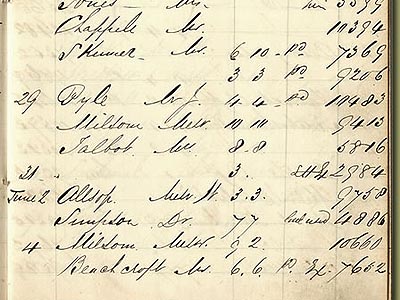 Jones - Mr.
Chappell Mr. 10394
Skinner - Mr. 6 10 - pd 7369
3 3 pd 9206
29 Pyle Mr J. 4 4 - pd 10483
Milsom Messrs. 10 10 9413
Talbot Mr. 8.8 5816
31 3. 2984
June 2 Allsop Messrs W. 3.3. 9758
Simpson Dr. 7 7 4886
4 Milsom Messrs. 9 2 10660
Beachcroft Mr. 6.6. pd 7652